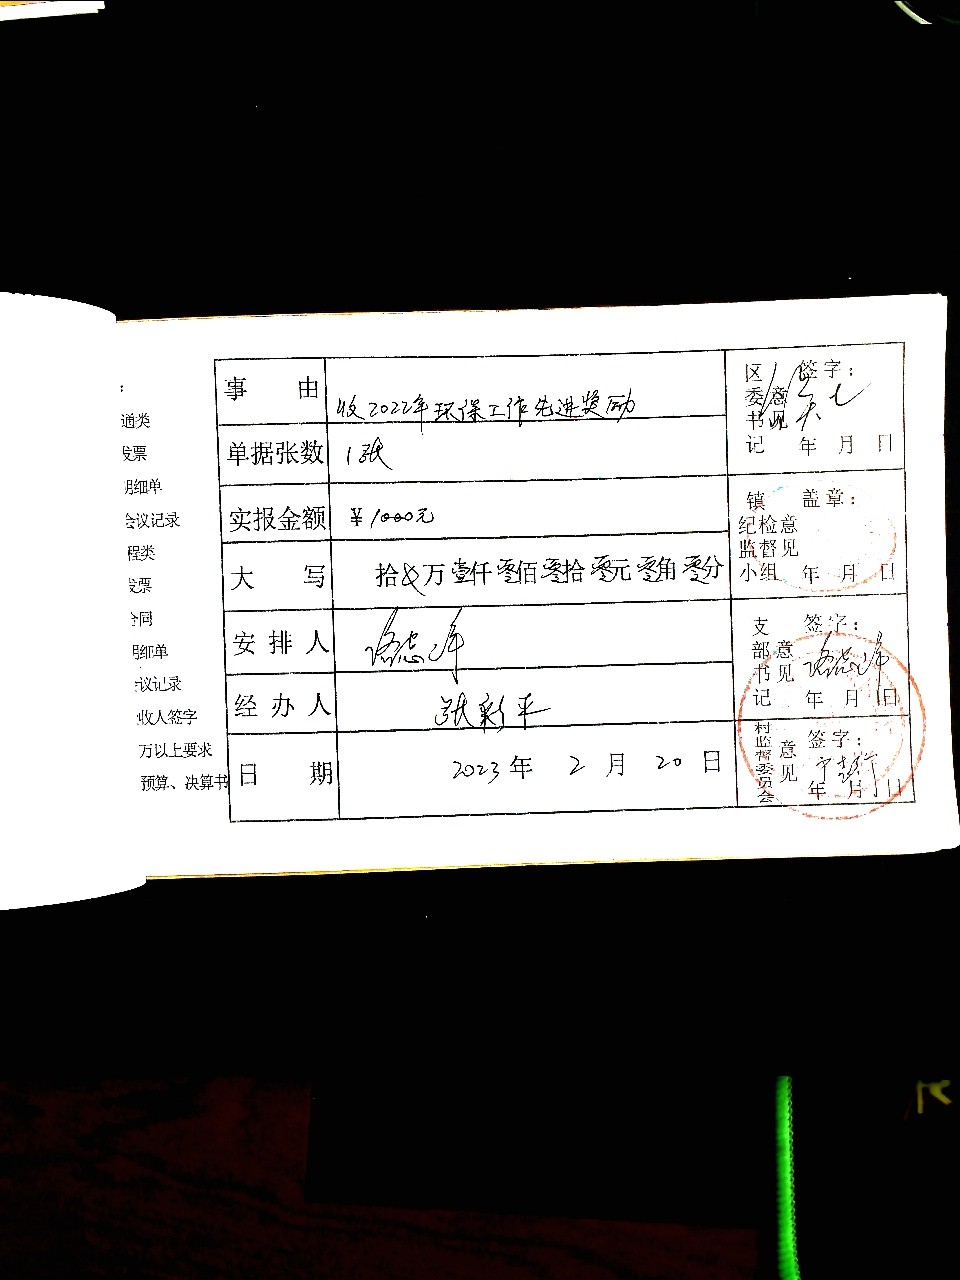 ：
通类
发票
明细单
会议记录
程类
发票
合同
明细单
议记录
收人签字
万以上要求
预算、决算书
事 由
收2022年环保工作先进奖励
单据张数
1张
实报金额
¥1000元
大 写
拾 万壹仟零佰零拾零元零角零分
安排人
经办人
张彩平
日 期
2023年 2 月 20 日
区委书记意见
签字：
年 月 日
镇纪检监督小组意见
盖章：
年 月 日
支部书记意见
签字：
年 月 日
村监督委员会意见
签字：
年 月 日